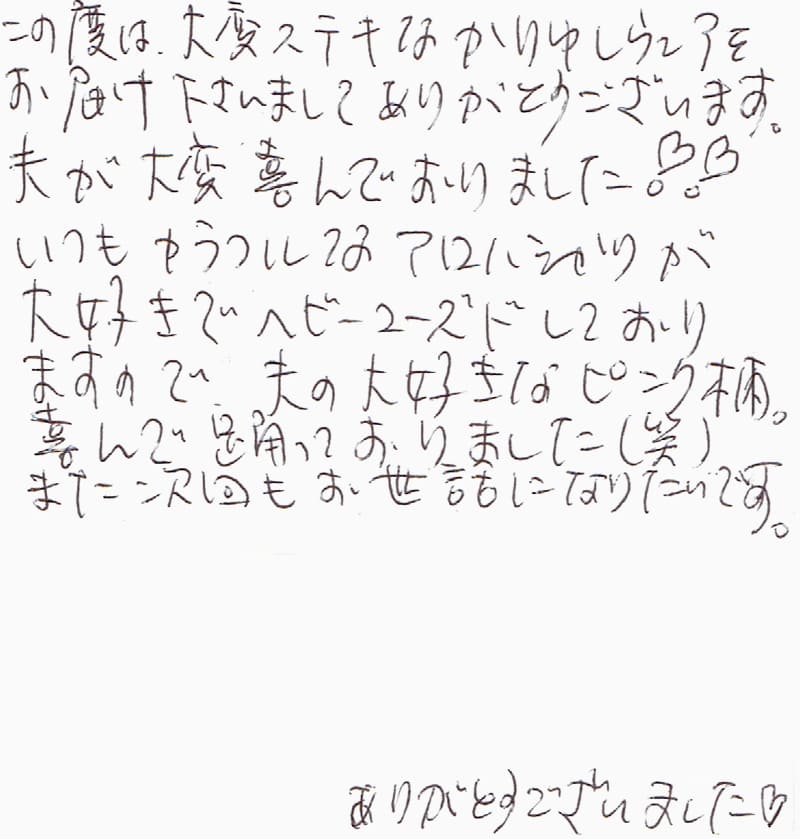 この度は、大変ステキなかりゆしウェアを
お届け下さいましてありがとうございます。
夫が大変喜んでおりました♡♡
いつもカラフルなアロハシャツが
大好きでヘビーユーズドしており
ますので、夫の大好きなピンク柄。
喜んで踊っておりました(笑)
また次回もお世話になりたいです。
ありがとうございました♡